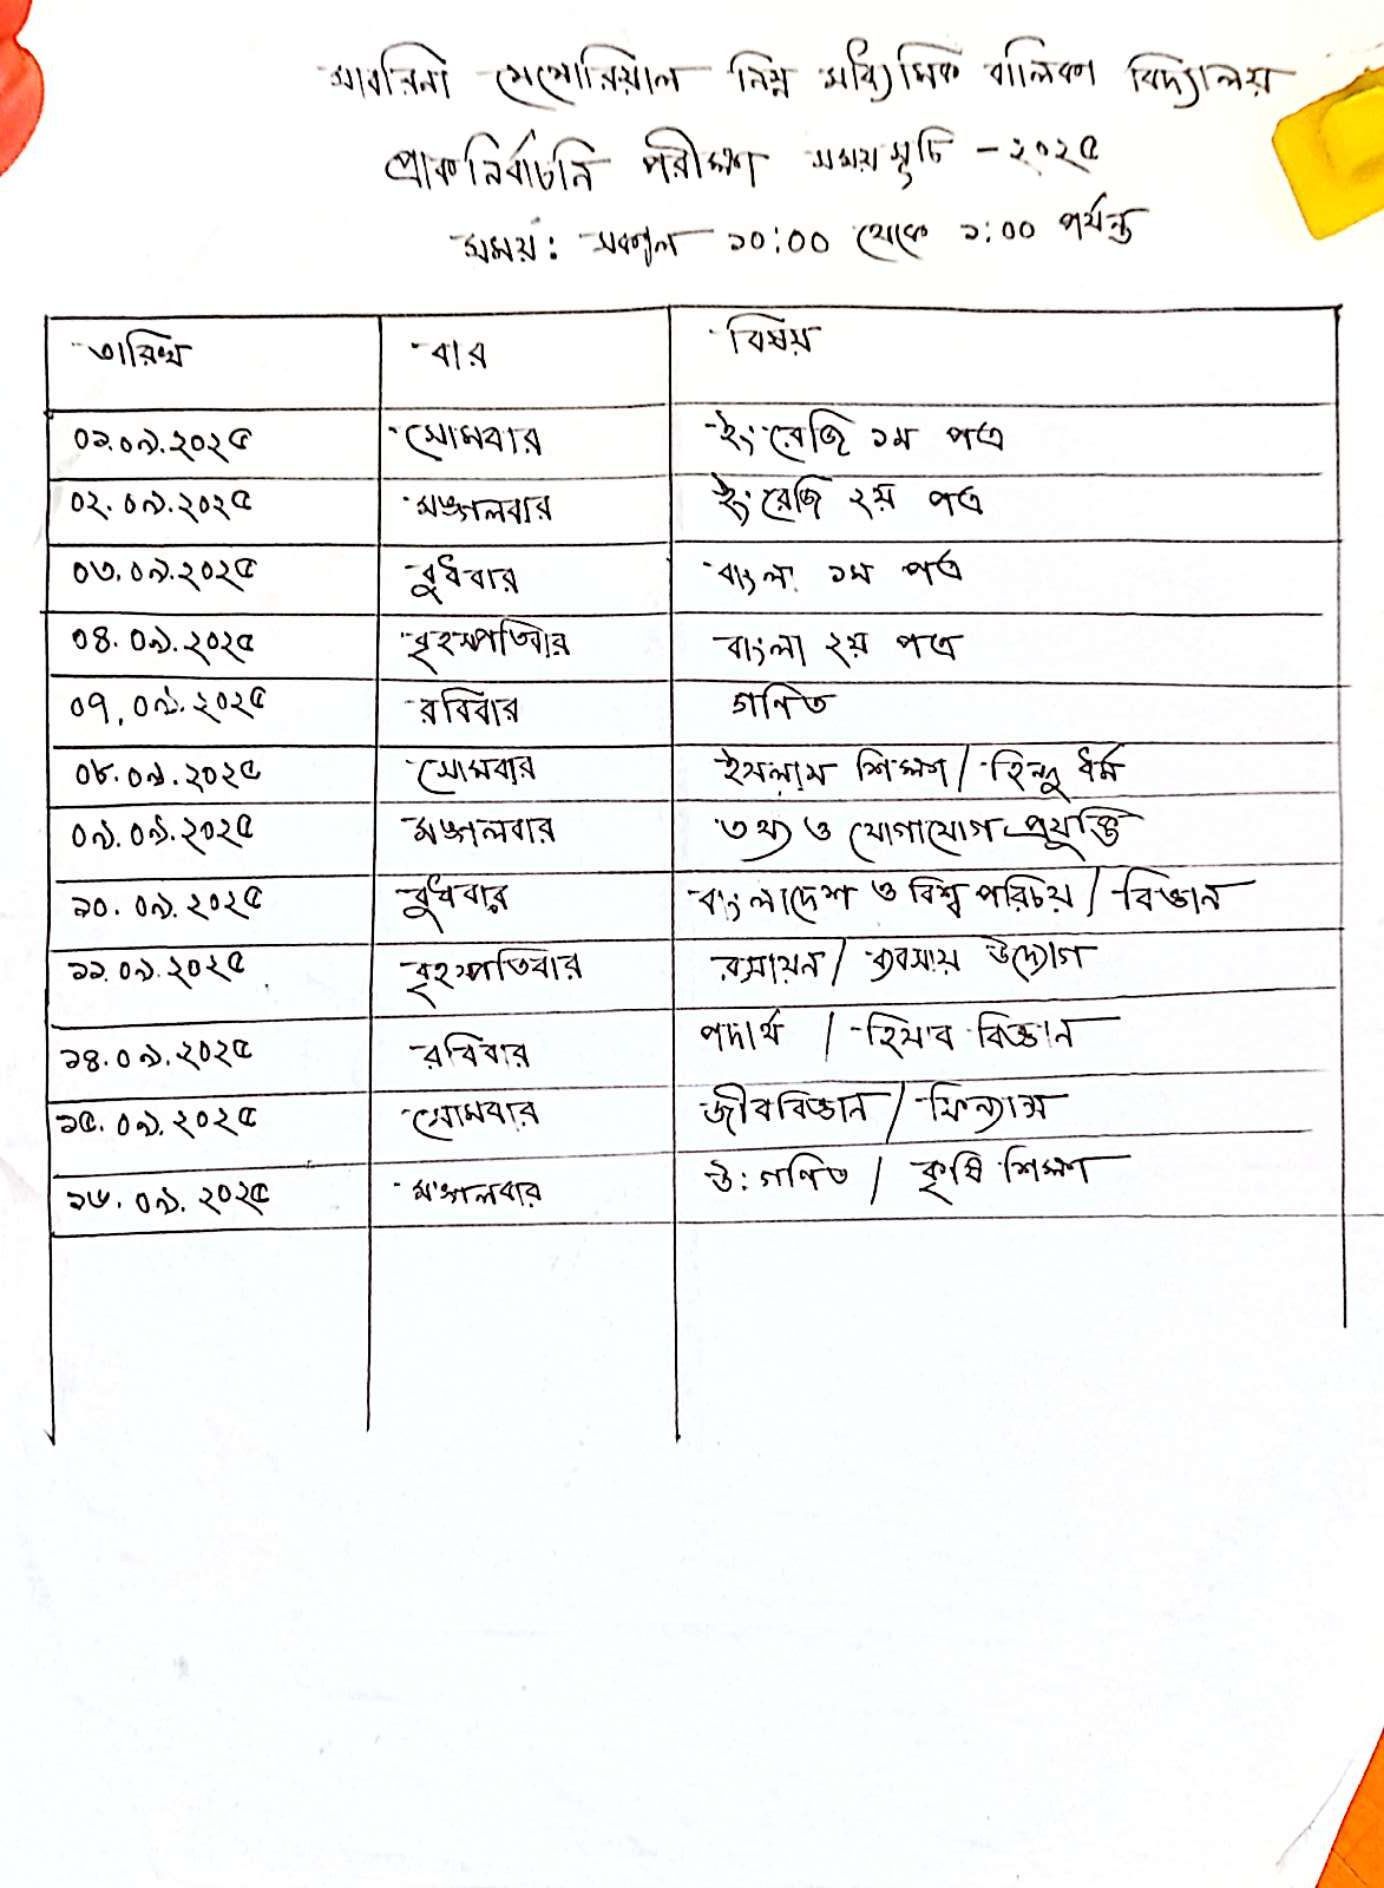 সাবরিনা মেমোরিয়াল নিম্ন মাধ্যমিক বালিকা বিদ্যালয়
প্রাকনির্বাচনি পরীক্ষা সময়সূচি - ২০২৫
সময়: সকাল ১০:০০ থেকে ১:০০ পর্যন্ত
তারিখ বার বিষয়
০১.০৯.২০২৫ সোমবার ইংরেজি ১ম পত্র
০২.০৯.২০২৫ মঙ্গলবার ইংরেজি ২য় পত্র
০৩.০৯.২০২৫ বুধবার বাংলা ১ম পত্র
০৪.০৯.২০২৫ বৃহস্পতিবার বাংলা ২য় পত্র
০৭.০৯.২০২৫ রবিবার গণিত
০৮.০৯.২০২৫ সোমবার ইসলাম শিক্ষা / হিন্দু ধর্ম
০৯.০৯.২০২৫ মঙ্গলবার তথ্য ও যোগাযোগ প্রযুক্তি
১০.০৯.২০২৫ বুধবার বাংলাদেশ ও বিশ্ব পরিচয় / বিজ্ঞান
১১.০৯.২০২৫ বৃহস্পতিবার রসায়ন / ব্যবসায় উদ্যোগ
১৪.০৯.২০২৫ রবিবার পদার্থ / হিসাব বিজ্ঞান
১৫.০৯.২০২৫ সোমবার জীববিজ্ঞান / ফিন্যান্স
১৬.০৯.২০২৫ মঙ্গলবার উ: গণিত / কৃষি শিক্ষা